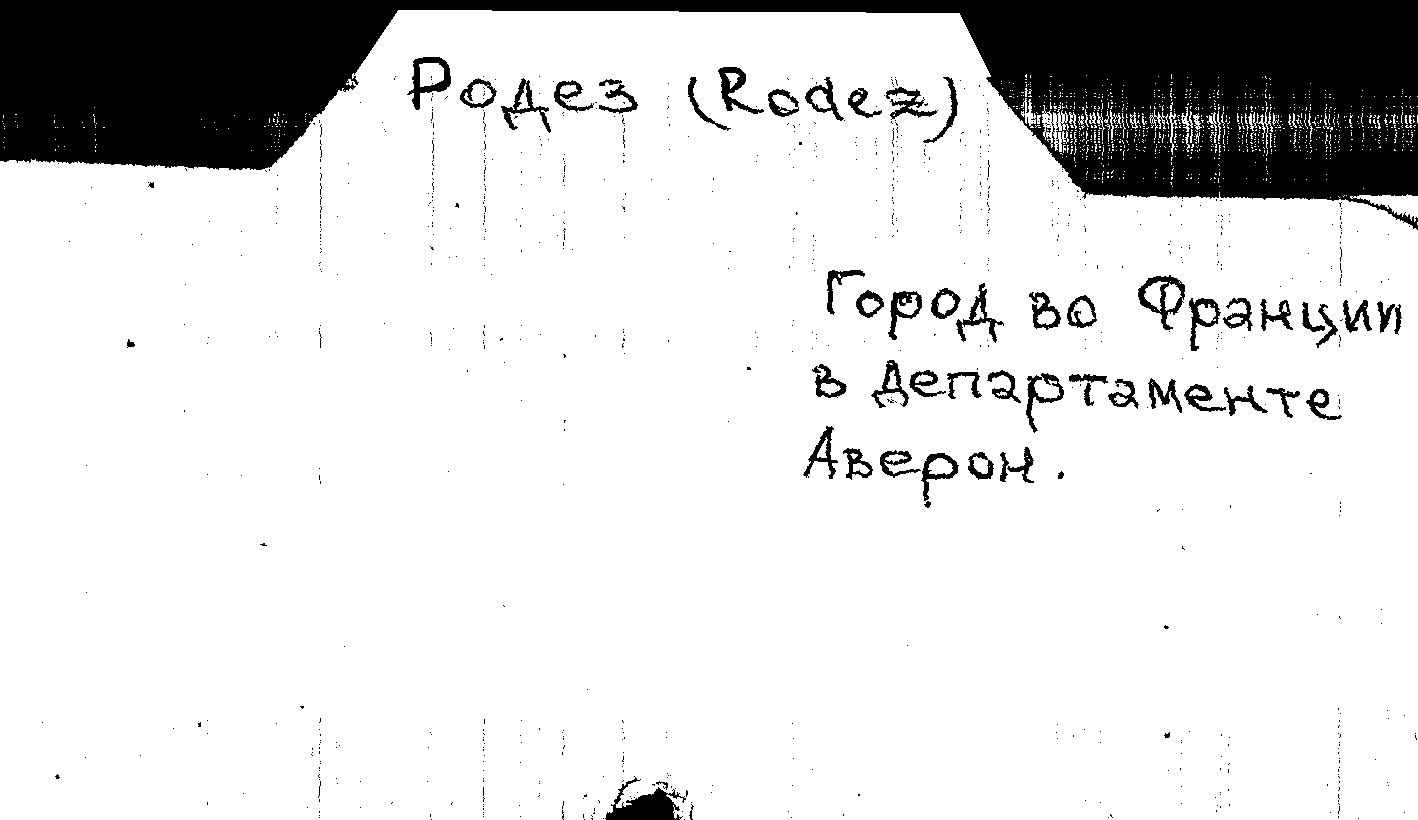 Родез (Rodez)
Город во Франции
в департаменте
Аверон.